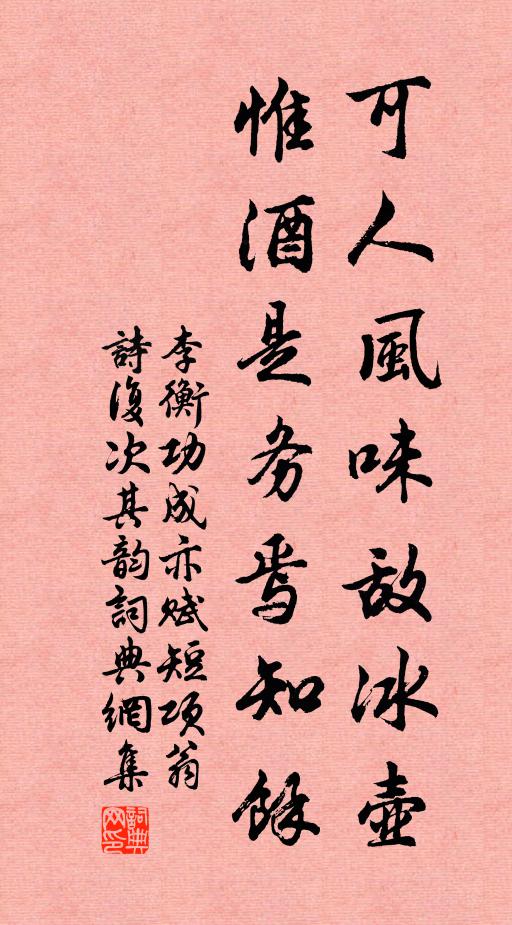 可人風味敌冰壺
惟酒是务焉知餘
李衡功成亦赋短项翁
詩復次其韵詞典網集
詞典网印